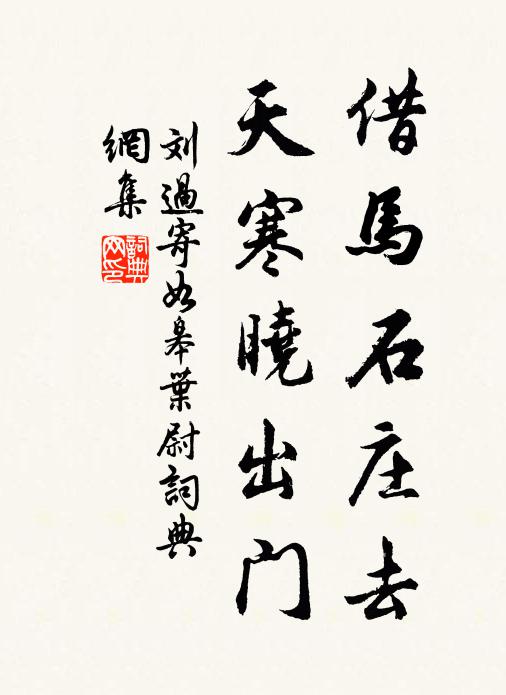 借馬石庄去
天寒曉出門
刘過寄如皋葉尉詞典
網集
詞典
网印